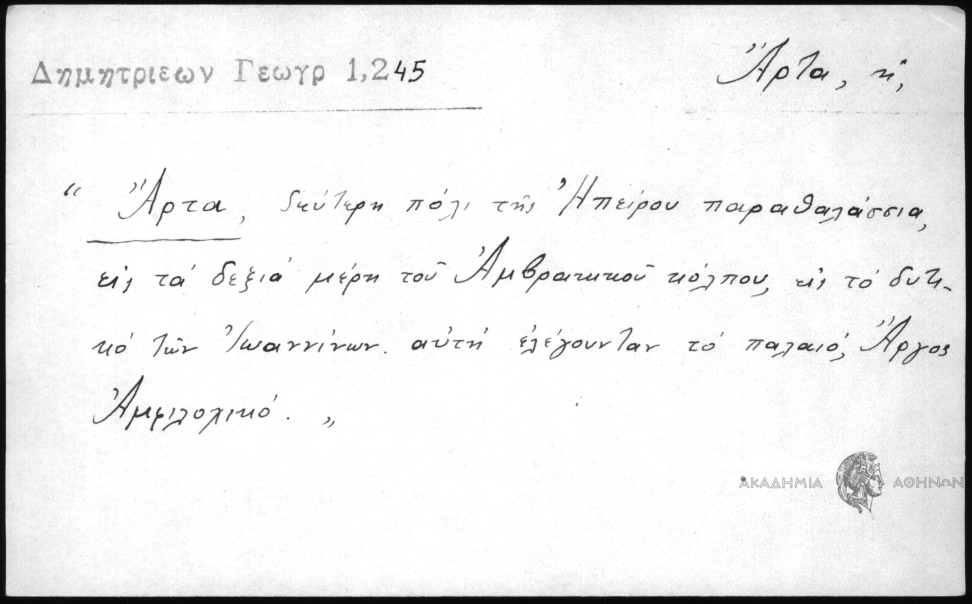 Δημητριεων Γεωγρ 1,245
Ἄρτα, ἡ,
“ Ἄρτα, δεύτερη πόλι τῆς Ἠπείρου παραθαλάσσια,
εἰς τά δεξιά μέρη τοῦ Ἀμβρακικοῦ κόλπου, εἰς τό δυτι-
κό τῶν Ἰωαννίνων. αὐτή ἐλέγουνταν τό παλαιό, Ἄργος
Ἀμφιλοχικό. „
ΑΚΑΔΗΜΙΑ ΑΘΗΝΩΝ